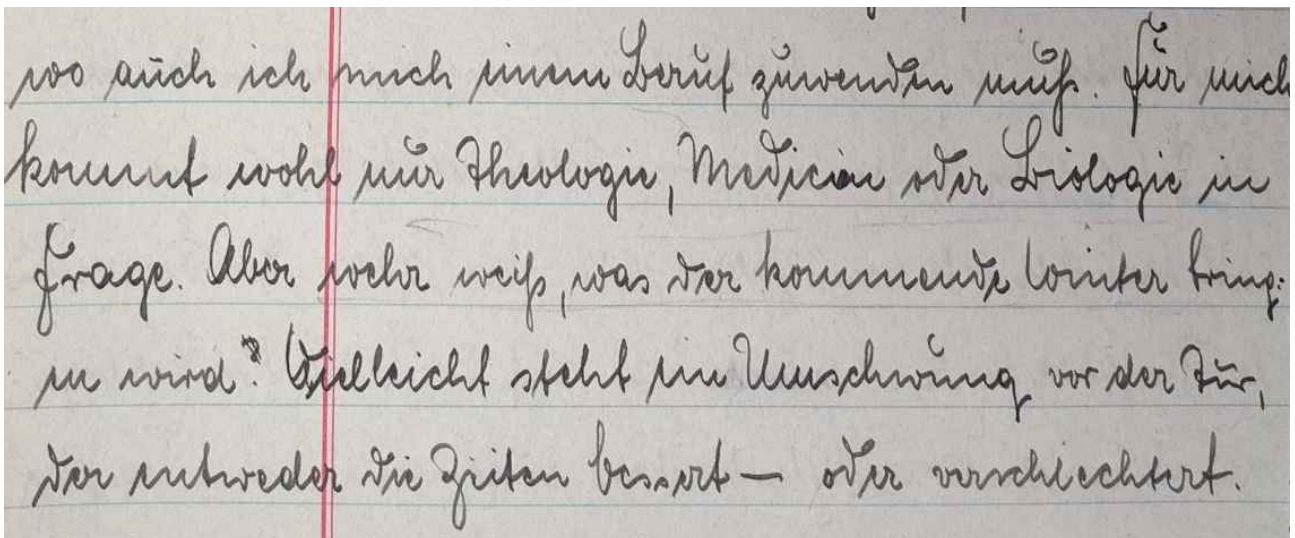 wo auch ich mich einem Beruf zuwenden muß. Für mich
kommt wohl nur Theologie, Medicin oder Biologie in
Frage. Aber wehr weiß, was der kommende Winter bring-
en wird? Vielleicht steht ein Umschwung vor der Tür,
der entweder die Zeiten bessert — oder verschlechtert.